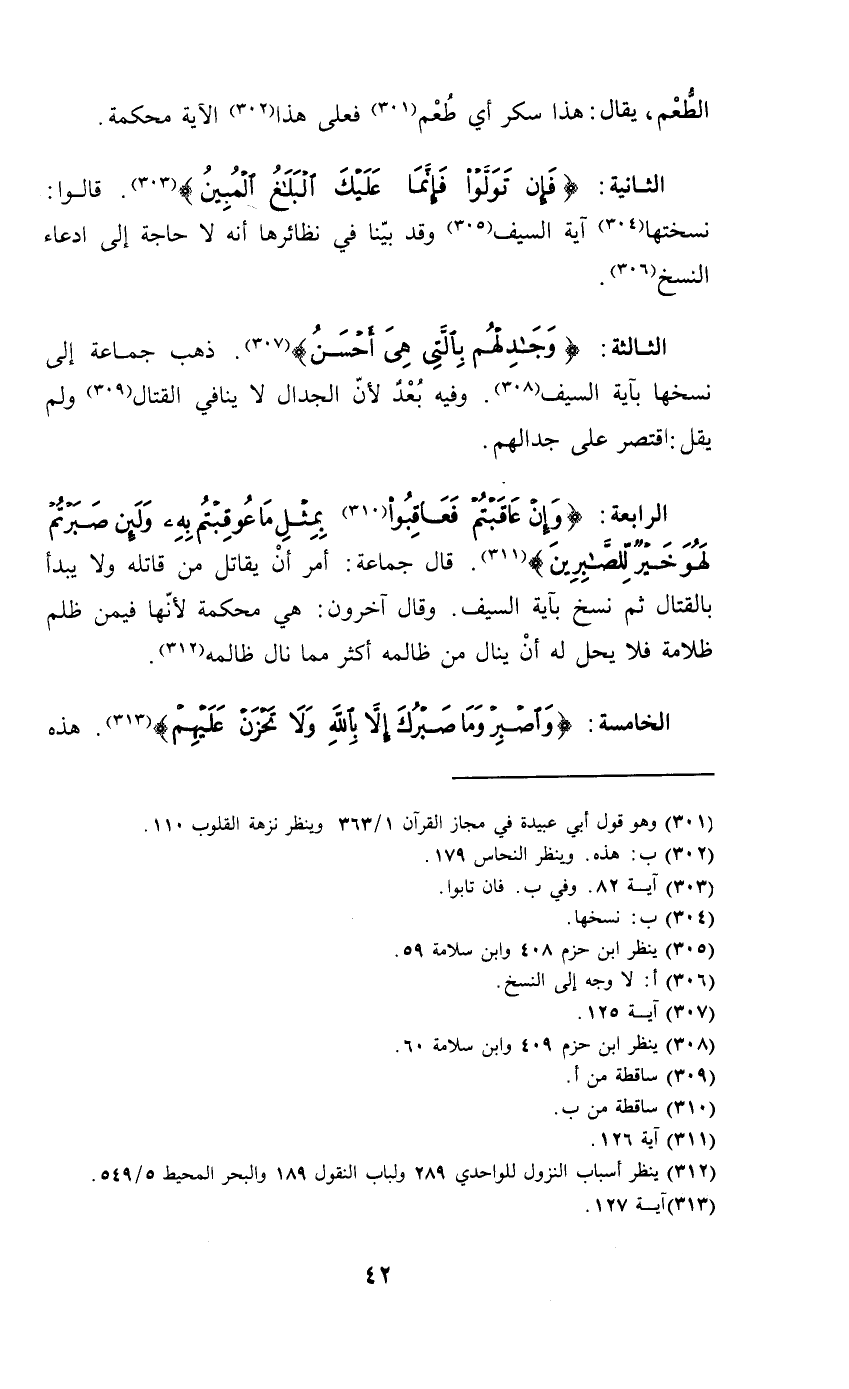 الطُّعْم، يقال: هذا سكر أي طُعْم(٣٠١) فعلى هذا(٣٠٢) الآية محكمة.
الثانية: ﴿فَإِن تَوَلَّوْا۟ فَإِنَّمَا عَلَيْكَ ٱلْبَلَـٰغُ ٱلْمُبِينُ﴾(٣٠٣). قالوا:
نسختها(٣٠٤) آية السيف(٣٠٥) وقد بيّنا في نظائرها أنه لا حاجة إلى ادعاء
النسخ(٣٠٦).
الثالثة: ﴿وَجَـٰدِلْهُم بِٱلَّتِي هِىَ أَحْسَنُ﴾(٣٠٧). ذهب جماعة إلى
نسخها بآية السيف(٣٠٨). وفيه بُعْدٌ لأنّ الجدال لا ينافي القتال(٣٠٩) ولم
يقل: اقتصر على جدالهم.
الرابعة: ﴿وَإِنْ عَاقَبْتُمْ فَعَاقِبُوا۟(٣١٠) بِمِثْلِ مَا عُوقِبْتُم بِهِۦ وَلَئِن صَبَرْتُمْ
لَهُوَ خَيْرٌ لِّلصَّـٰبِرِينَ﴾(٣١١). قال جماعة: أمر أنْ يقاتل من قاتله ولا يبدأ
بالقتال ثم نسخ بآية السيف. وقال آخرون: هي محكمة لأنّها فيمن ظلم
ظلامة فلا يحل له أنْ ينال من ظالمه أكثر مما نال ظالمه(٣١٢).
الخامسة: ﴿وَٱصْبِرْ وَمَا صَبْرُكَ إِلَّا بِٱللَّهِ وَلَا تَحْزَنْ عَلَيْهِمْ﴾(٣١٣). هذه
(٣٠١) وهو قول أبي عبيدة في مجاز القرآن ٣٦٣/١ وينظر نزهة القلوب ١١٠.
(٣٠٢) ب: هذه. وينظر النحاس ١٧٩.
(٣٠٣) آية ٨٢. وفي ب. فان تابوا.
(٣٠٤) ب: نسخها.
(٣٠٥) ينظر ابن حزم ٤٠٨ وابن سلامة ٥٩.
(٣٠٦) أ: لا وجه إلى النسخ.
(٣٠٧) آية ١٢٥.
(٣٠٨) ينظر ابن حزم ٤٠٩ وابن سلامة ٦٠.
(٣٠٩) ساقطة من أ.
(٣١٠) ساقطة من ب.
(٣١١) آية ١٢٦.
(٣١٢) ينظر أسباب النزول للواحدي ٢٨٩ ولباب النقول ١٨٩ والبحر المحيط ٥٤٩/٥.
(٣١٣) آية ١٢٧.
٤٢